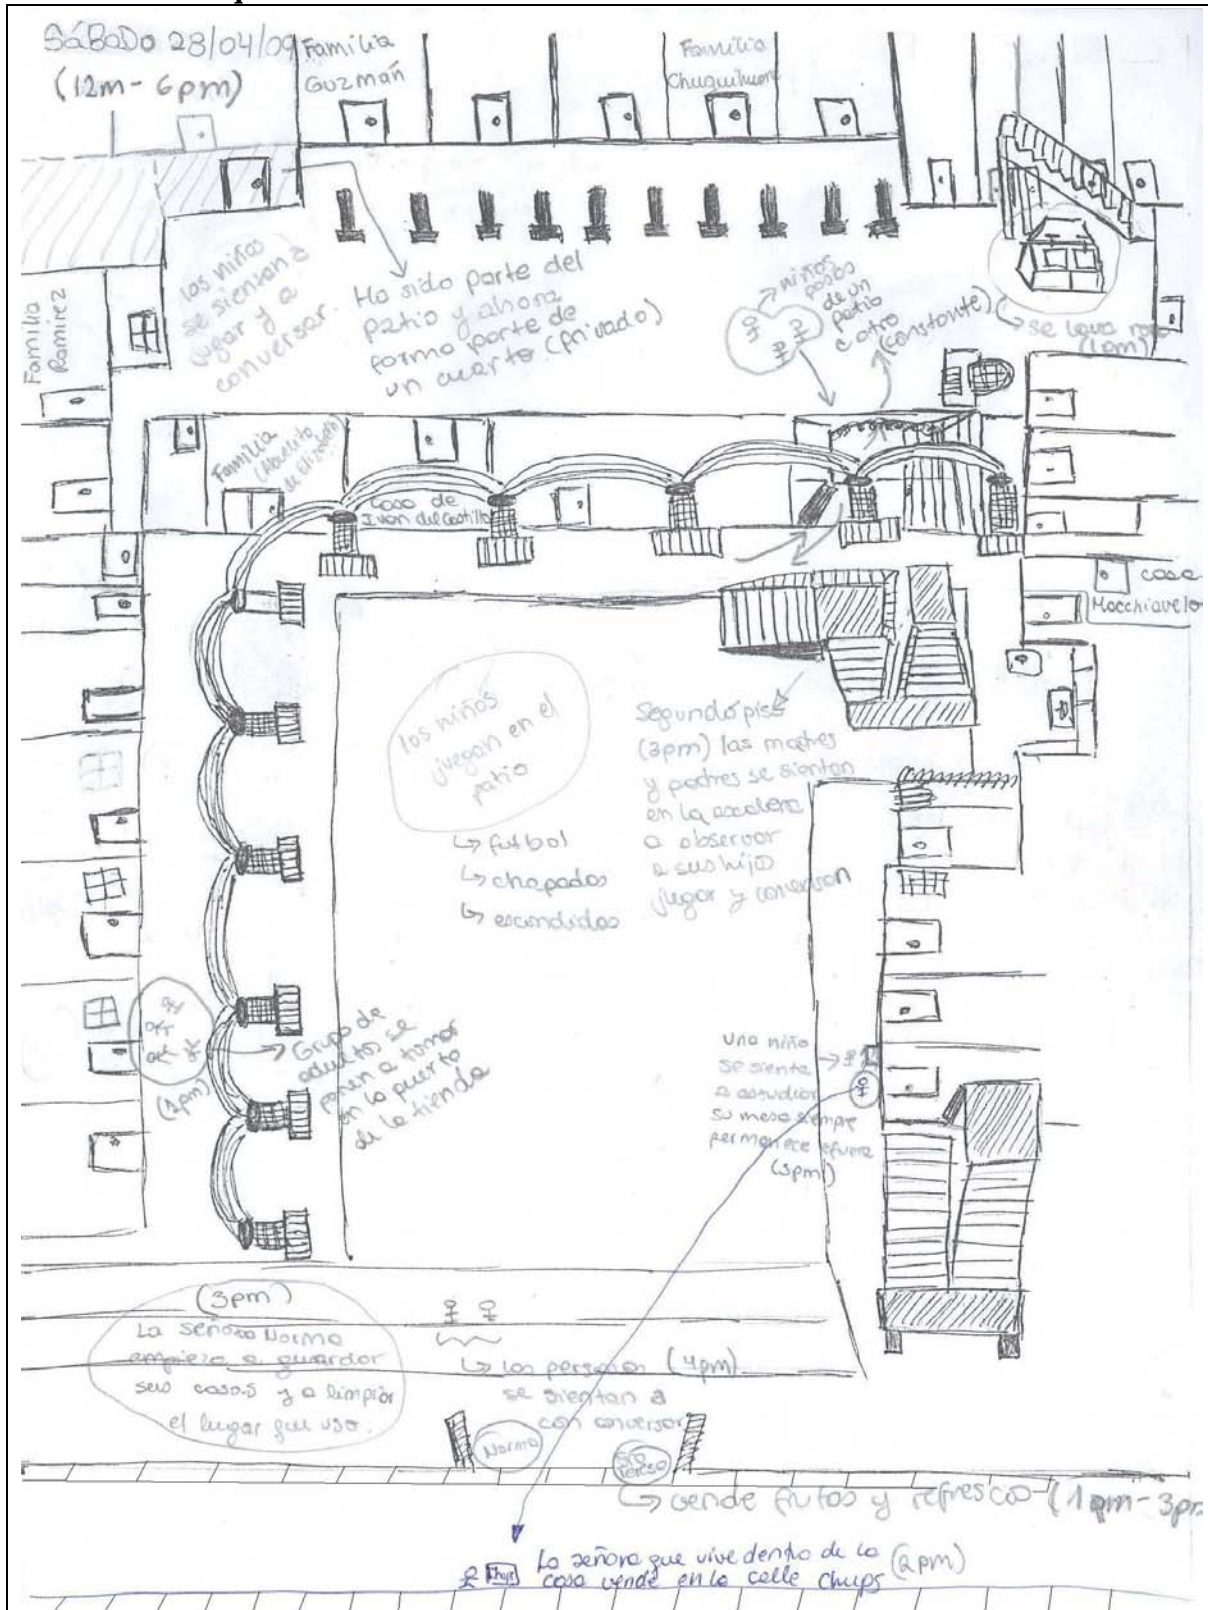 SÁBADO 28/04/09
(12m - 6pm)
Familia
Guzmán
Familia
Familia
Ramirez
los niños
se sientan a
jugar y a
conversar.
Ha sido parte del
patio y ahora
forma parte de
un cuarto (privado)
niños
de un
patio
a otro
(constante)
se lava ropa
(1pm)
Familia
(Abuelito
de Elizabeth)
Casa de
Ivan del Castillo
casa
Macchiavelo
los niños
juegan en el
patio
futbol
chapadas
escondidas
Segundo piso
(3pm) las madres
y padres se sientan
en la escalera
a observar
a sus hijos
jugar y conversan
Grupo de
adultos se
ponen a tomar
en la puerta
de la tienda
una niña
se sienta
a estudiar
su mesa siempre
permanece afuera
(3pm)
(3pm)
La señora Norma
empieza a guardar
sus cosas y a limpiar
el lugar que uso.
las personas (4pm)
se sientan a
con conversar
Norma
vende frutas y refrescos (1pm - 3pm
Chups
La señora que vive dentro de la (2pm)
casa vende en la calle chups